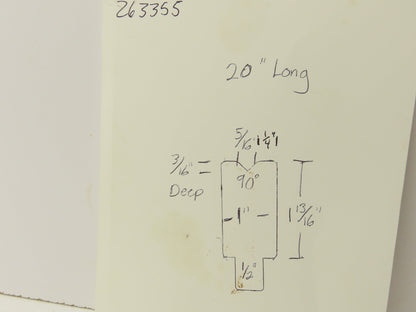 263355
20" Long
5/16" 1/4"
3/16"
Deep
90°
1"
1 13/16"
1/2"